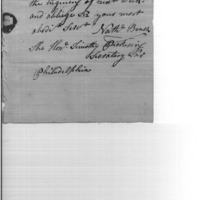 the inquiry of
and oblige Sir your most
obedt. Servt. Nathl.
The Honl. Timothy Pickering
Secretary
Philadelphia